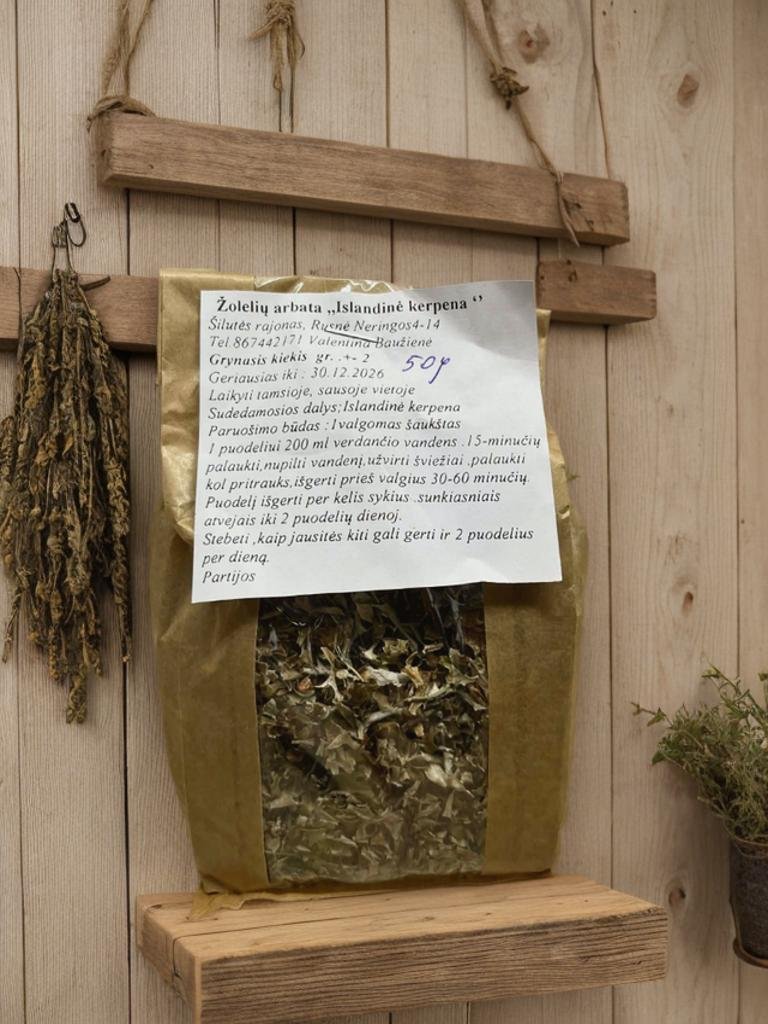 Žolelių arbata „Islandinė kerpena ‘’
Šilutės rajonas, Rusnė Neringos4-14
Tel.867442171 Valentina Baužienė
Grynusis kiekis gr. .+- 2 50g
Geriausias iki : 30.12.2026
Laikyti tamsioje, sausoje vietoje
Sudedamosios dalys;Islandinė kerpena
Paruošimo būdas : 1valgomas šaukštas
1 puodeliui 200 ml verdančio vandens .15-minučių
palaukti,nupilti vandenį,užvirti šviežiai ,palaukti
kol pritrauks,išgerti prieš valgius 30-60 minučių.
Puodelį išgerti per kelis sykius .sunkiasniais
atvejais iki 2 puodelių dienoj.
Stebėti ,kaip jausitės kiti gali gerti ir 2 puodelius
per dieną.
Partijos